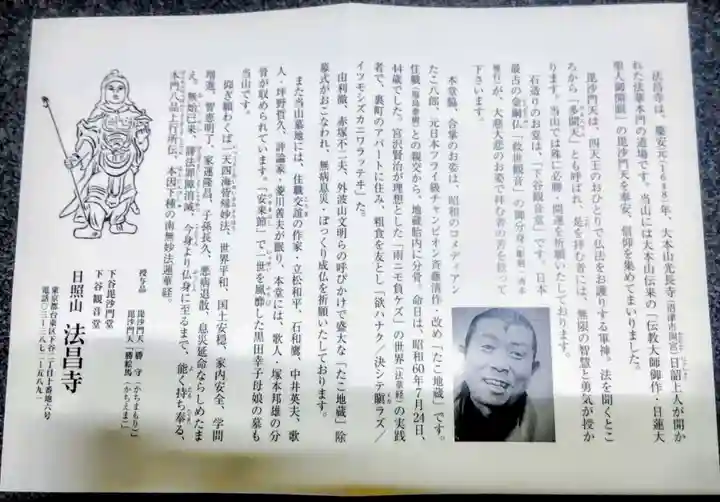 法昌寺は、慶安元(1648)年、大本山光長寺(沼津市岡宮)日詔上人が開か
れた法華本門の道場です。当山には大本山伝来の「伝教大師御作・日蓮大
聖人御開眼」の毘沙門天を奉安、信仰を集めてまいりました。
毘沙門天は、四天王のおひとりで仏法をお護りする軍神。法を聞くとこ
ろから「多聞天」とも呼ばれ、是を拝む者には、無限の智慧と勇気が授か
ります。当山では殊に必勝・開運を祈願いたしております。
石造りのお堂は、「下谷観音堂」です。日本
最古の金銅仏「救世観音」の御分身
が、大慈大悲のお姿で拝む者の苦を救って
下さいます。
本堂脇、合掌のお姿は、昭和のコメディアン
たこ八郎、元日本フライ級チャンピオン斎藤清作・改め「たこ地蔵」です。
住職(福島泰樹)との親交から、地蔵胎内に分骨。命日は、昭和60年7月24日、
44歳でした。宮沢賢治が理想とした「雨ニモ負ケズ」の世界(法華経)の実践
者で、裏町のアパートに住み、粗食を友とし「欲ハナク/決シテ瞋ラズ/
イツモシズカニワラッテヰ」た。
由利徹、赤塚不二夫、外波山文明らの呼びかけで盛大な「たこ地蔵」除
幕式がおこなわれ、無病息災・ぽっくり成仏を祈願いたしております。
また当山墓地には、住職交誼の作家・立松和平、石和鷹、中井英夫、歌
人・坪野哲久、評論家・菱川善夫が眠り、本堂には、歌人・塚本邦雄の分
骨が収められています。「安楽館」で一世を風靡した黒田幸子母娘の墓も
当山です。
仰ぎ願わくば一天四海皆帰妙法、世界平和、国土安穏、家内安全、学問
増進、智恵明了、家運隆昌、子孫長久、悪病退散、息災延命ならしめたま
え。無始已来、謗法罪障消滅、今身より仏身に至るまで、能く持ち奉る、
本門八品上行所伝、本因下種の南無妙法蓮華経。
授与品
毘沙門天「勝 守(かちまもり)」
毘沙門天「勝絵馬(かちえま)」
下谷毘沙門堂
下谷観音堂
日照山 法昌寺
東京都台東区下谷二丁目十番地六号